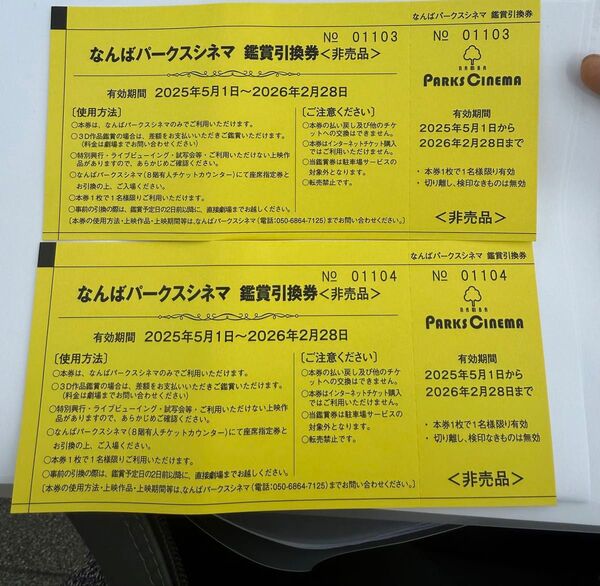 なんばパークスシネマ 鑑賞引換券
№ 01103
なんばパークスシネマ 鑑賞引換券＜非売品＞
有効期間 2025年5月1日～2026年2月28日
〔使用方法〕
○本券は、なんばパークスシネマのみでご利用いただけます。
○3D作品鑑賞の場合は、差額をお支払いいただきご鑑賞いただけます。
(料金は劇場までお問い合わせください)
○特別興行・ライブビューイング・試写会等・ご利用いただけない上映作
品がありますので、あらかじめご確認ください。
○なんばパークスシネマ(8階有人チケットカウンター)にて座席指定券と
お引換の上、ご入場ください。
○本券1枚で1名様限りご利用いただけます。
○事前の引換の際は、鑑賞予定日の2日前以降に、直接劇場までお越しください。
〔本券の使用方法・上映作品・上映期間等は、なんばパークスシネマ(電話：050-6864-7125)までお問い合わせください。〕
〔ご注意ください〕
○本券の払い戻し及び他のチケ
ットへの交換はできません。
○本券はインターネットチケット購入
ではご利用いただけません。
○当鑑賞券は駐車場サービスの
対象外となります。
○転売禁止です。
№ 01103
NAMBA
PARKS CINEMA
有効期間
2025年5月1日から
2026年2月28日まで
・本券1枚で1名様限り有効
・切り離し、検印なきものは無効
＜非売品＞
なんばパークスシネマ 鑑賞引換券
№ 01104
なんばパークスシネマ 鑑賞引換券＜非売品＞
有効期間 2025年5月1日～2026年2月28日
〔使用方法〕
○本券は、なんばパークスシネマのみでご利用いただけます。
○3D作品鑑賞の場合は、差額をお支払いいただきご鑑賞いただけます。
(料金は劇場までお問い合わせください)
○特別興行・ライブビューイング・試写会等・ご利用いただけない上映作
品がありますので、あらかじめご確認ください。
○なんばパークスシネマ(8階有人チケットカウンター)にて座席指定券と
お引換の上、ご入場ください。
○本券1枚で1名様限りご利用いただけます。
○事前の引換の際は、鑑賞予定日の2日前以降に、直接劇場までお越しください。
〔本券の使用方法・上映作品・上映期間等は、なんばパークスシネマ(電話：050-6864-7125)までお問い合わせください。〕
〔ご注意ください〕
○本券の払い戻し及び他のチケ
ットへの交換はできません。
○本券はインターネットチケット購入
ではご利用いただけません。
○当鑑賞券は駐車場サービスの
対象外となります。
○転売禁止です。
№ 01104
NAMBA
PARKS CINEMA
有効期間
2025年5月1日から
2026年2月28日まで
・本券1枚で1名様限り有効
・切り離し、検印なきものは無効
＜非売品＞